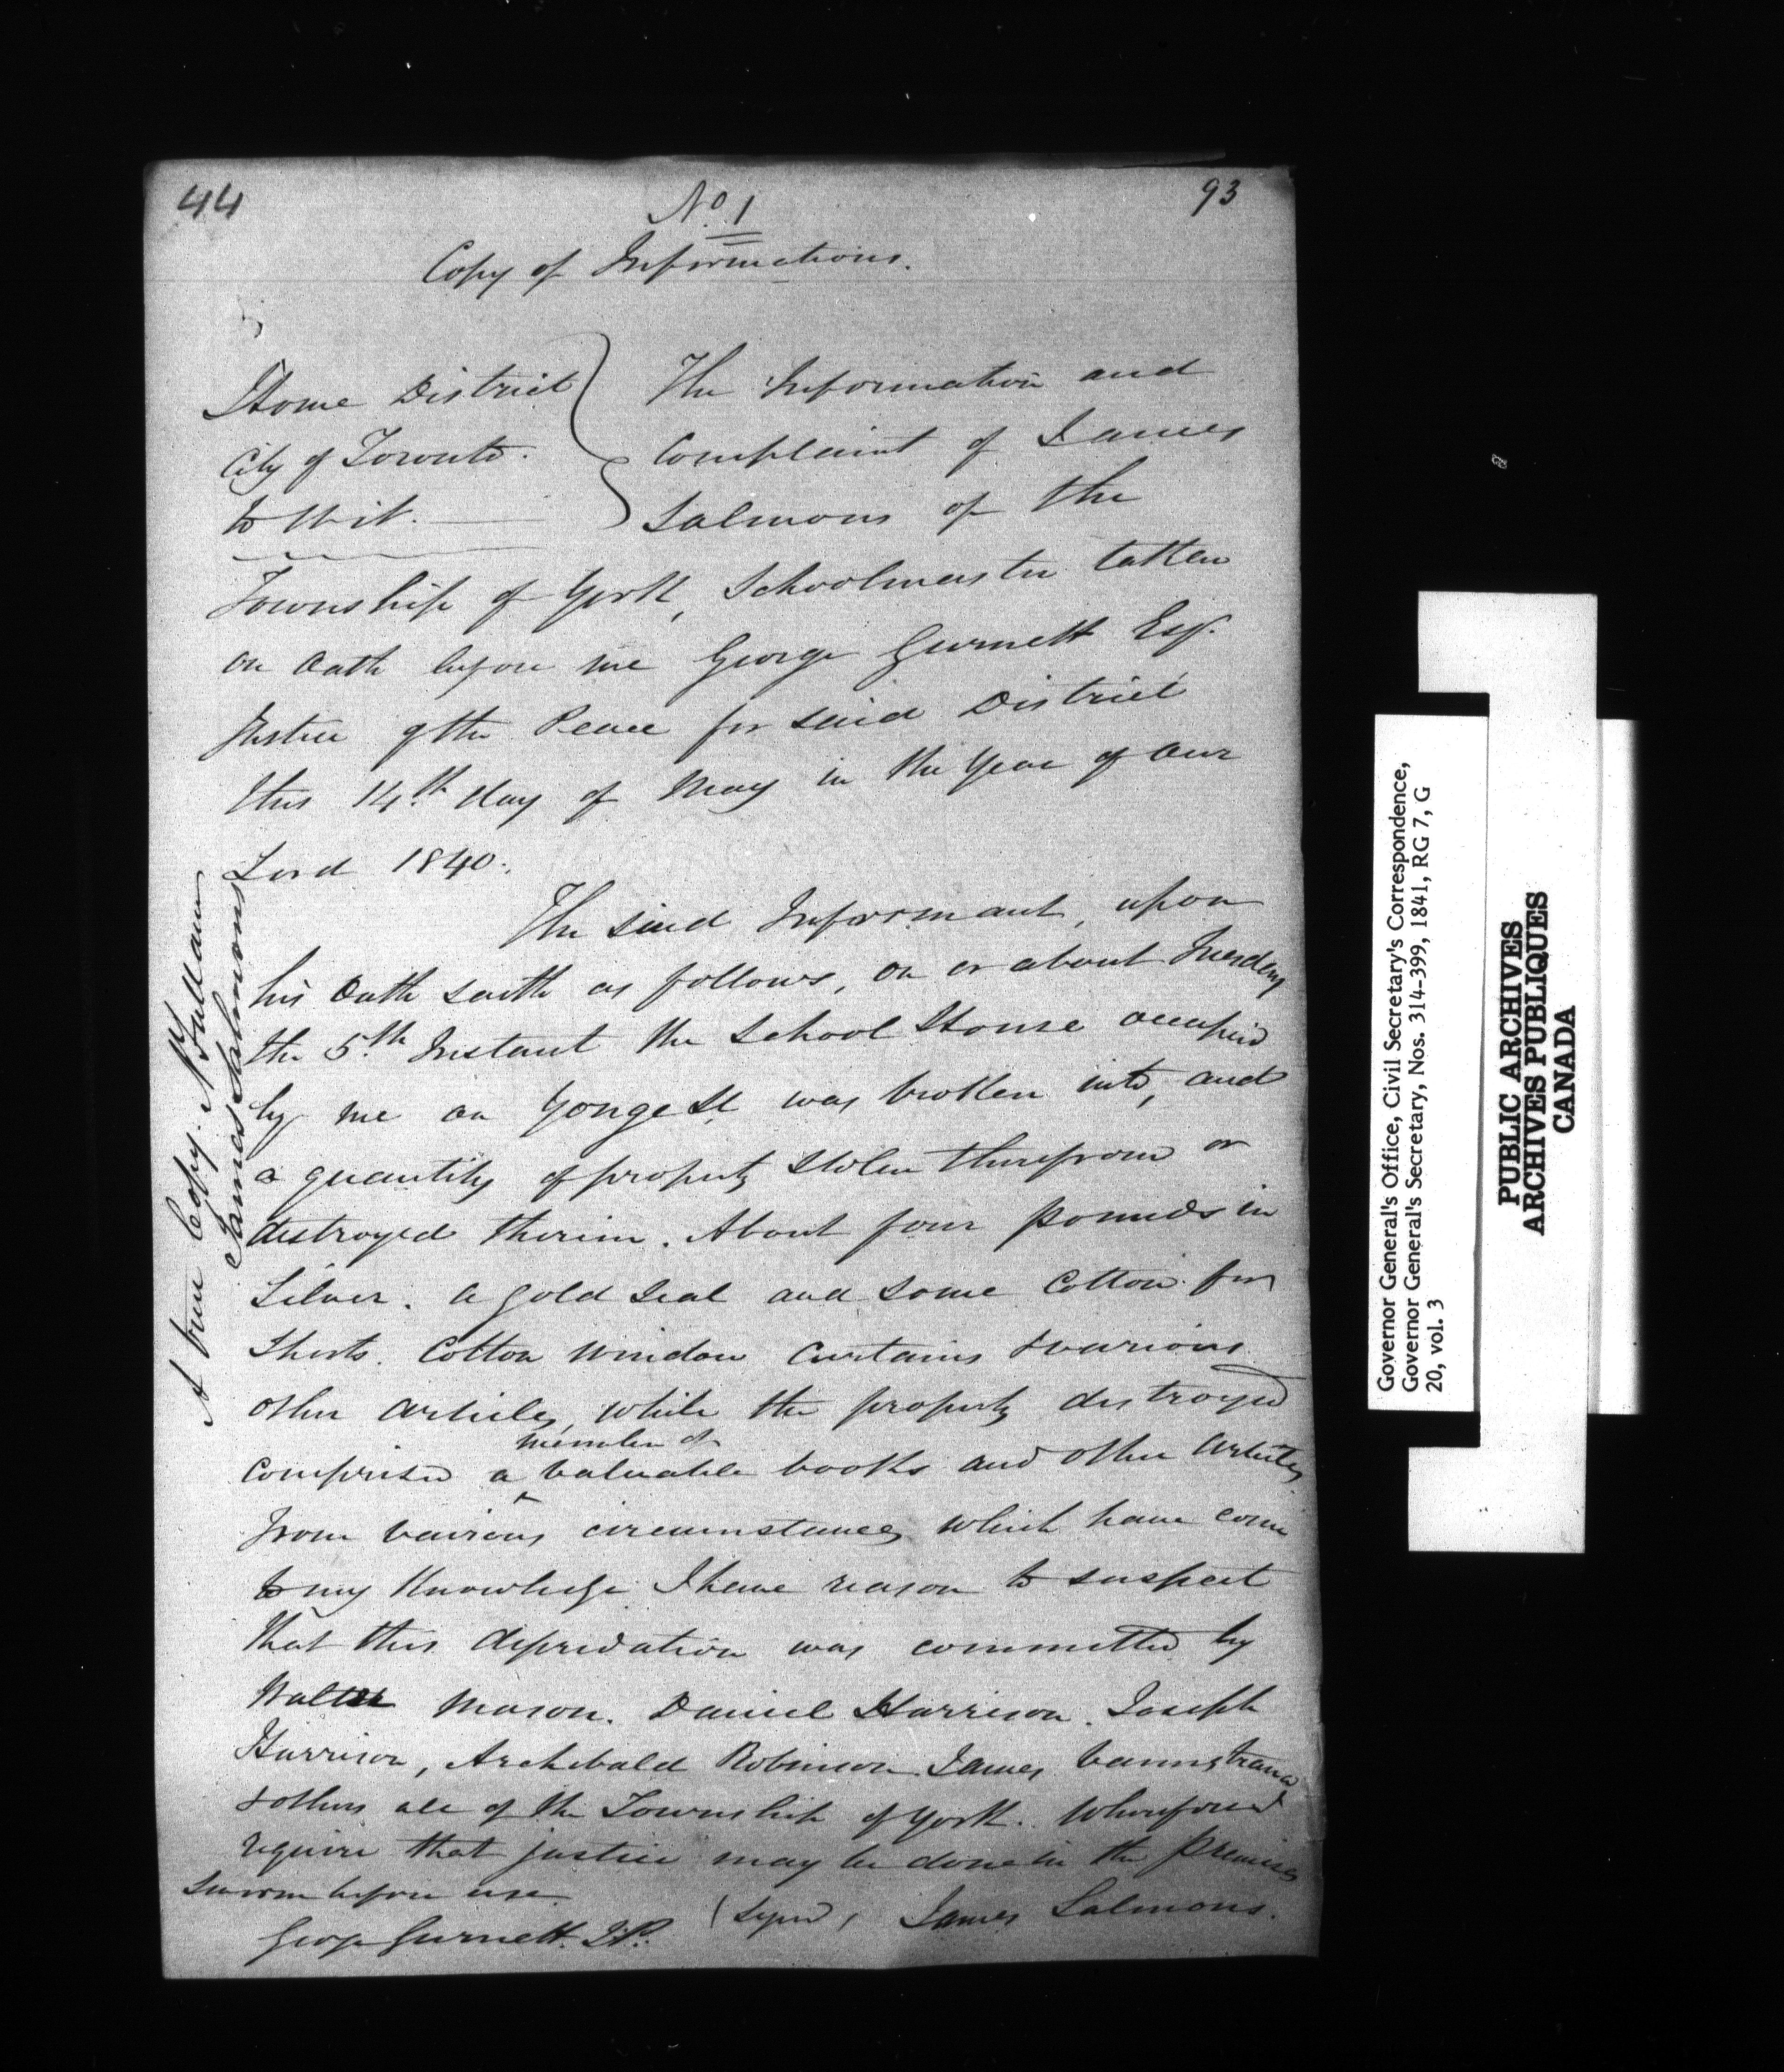 44
No. 1
93
Copy of Informations.
Home District
City of Toronto.
to Wit.
The Information and
Complaint of James
Salmons of the
Township of York, Schoolmaster taken
on Oath before me George Gurnett Esqr.
Justice of the Peace for said District
this 14th day of May in the Year of our
Lord 1840.
The said Informant, upon
his Oath saith as follows, on or about Tuesday
the 5th Instant the School House occupied
by me on Yonge St. was broken into, and
a quantity of property stolen therefrom or
destroyed therein. About four pounds in
Silver. a gold Seal and some Cotton for
Shirts. Cotton window Curtains & various
other articles, while the property destroyed
comprised a number of valuable books and other articles
from vairous circumstances which have come
to my Knowledge I have reason to suspect
that this depredation was committed by
Walter Mason. Daniel Harrison. Joseph
Harrison, Archibald Robinson James
& others all of the Township of York. Wherefore I
require that justice may be done in the premises
Sworn before me
George Gurnett. J.P.
(signed) James Salmons.
A true Copy.
James Salmons
Governor General's Office, Civil Secretary's Correspondence,
Governor General's Secretary, Nos. 314-399, 1841, RG 7, G
20, vol. 3
PUBLIC ARCHIVES
ARCHIVES PUBLIQUES
CANADA